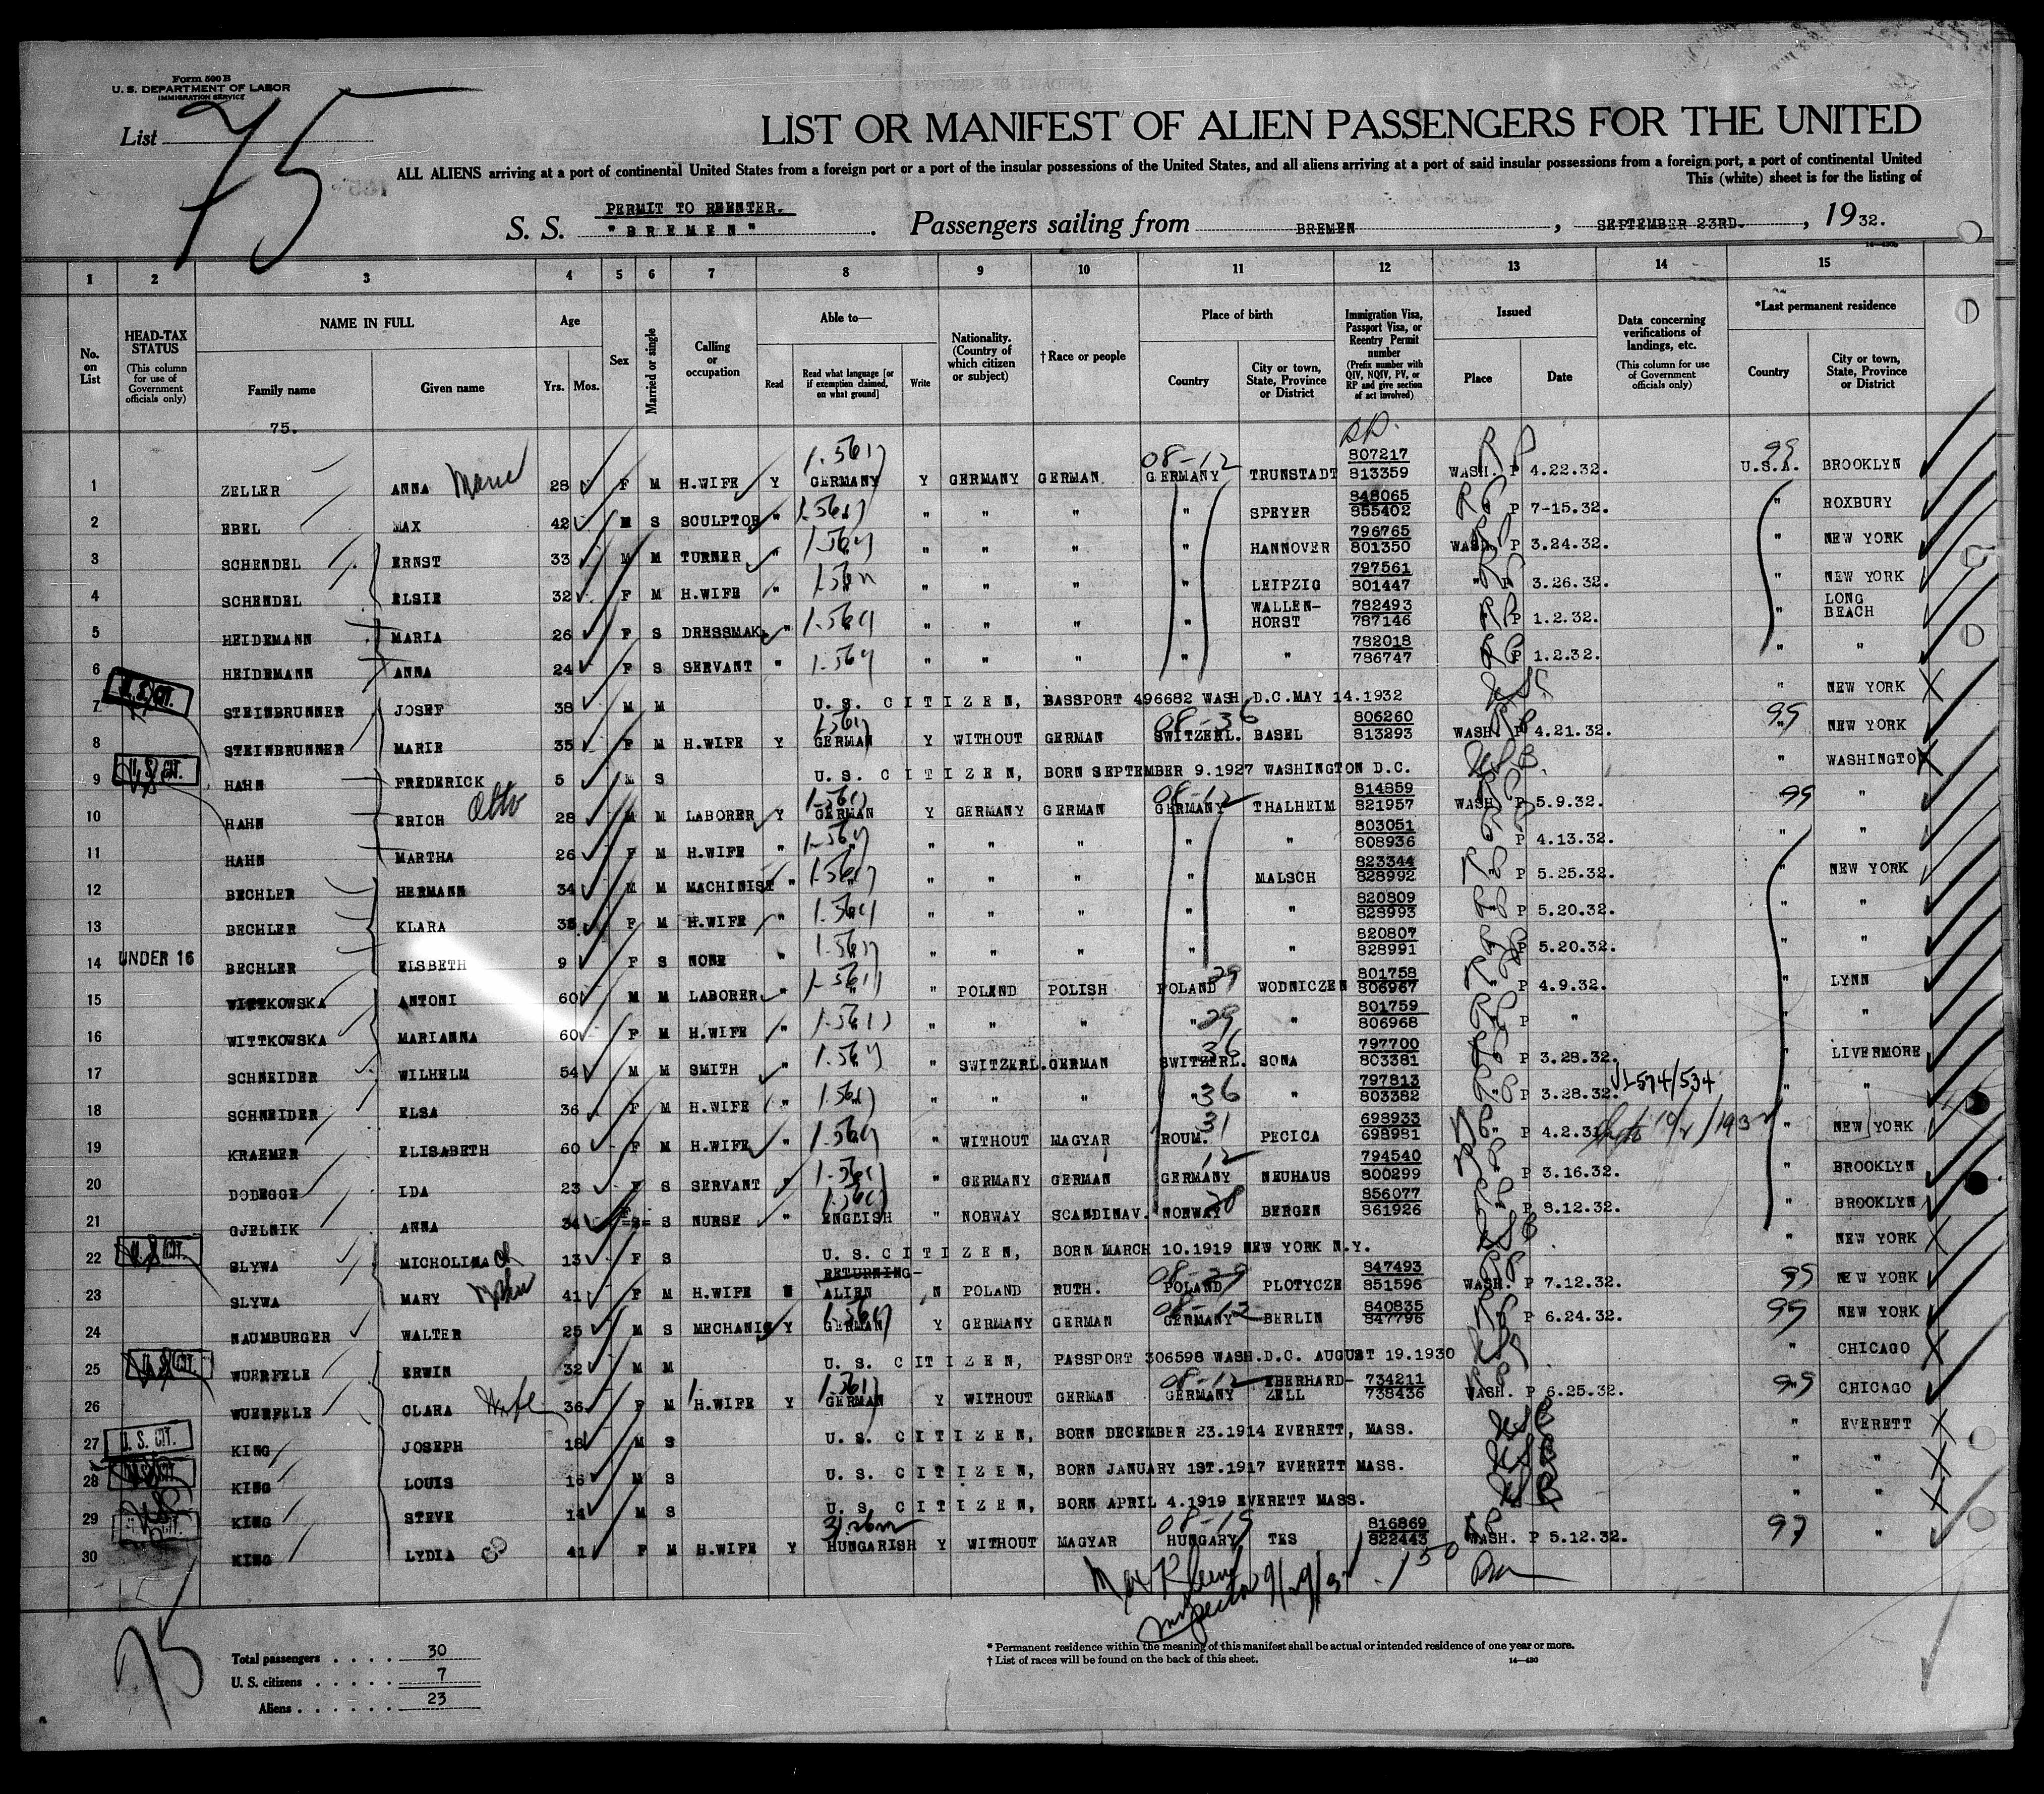 Form 500 B
U. S. DEPARTMENT OF LABOR
IMMIGRATION SERVICE
List 75
LIST OR MANIFEST OF ALIEN PASSENGERS FOR THE UNITED
ALL ALIENS arriving at a port of continental United States from a foreign port or a port of the insular possessions of the United States, and all aliens arriving at a port of said insular possessions from a foreign port, a port of continental United
This (white) sheet is for the listing of
PERMIT TO REENTER.
S. S. "BREMEN". Passengers sailing from BREMEN, SEPTEMBER 23RD., 1932.
14—430b
1 2 3 4 5 6 7 8 9 10 11 12 13 14 15
No. on List
HEAD-TAX STATUS (This column for use of Government officials only)
NAME IN FULL
Family name Given name
Age
Yrs. Mos.
Sex
Married or single
Calling or occupation
Able to—
Read Read what language [or if exemption claimed, on what ground] Write
Nationality. (Country of which citizen or subject)
† Race or people
Place of birth
Country City or town, State, Province or District
Immigration Visa, Passport Visa, or Reentry Permit number (Prefix number with QIV, NQIV, PV, or RP and give section of act involved)
Issued
Place Date
Data concerning verifications of landings, etc. (This column for use of Government officials only)
*Last permanent residence
Country City or town, State, Province or District
75.
1 ZELLER ANNA Marie 28 F M H.WIFE Y GERMANY Y GERMANY GERMAN 08-12 GERMANY TRUNSTADT 807217 813359 WASH. P 4.22.32. 99 U.S.A. BROOKLYN
2 EBEL MAX 42 M S SCULPTOR " " " " " SPEYER 848065 855402 RP P 7-15.32. " ROXBURY
3 SCHENDEL ERNST 33 M M TURNER " " " " HANNOVER 796765 801350 WASH. P 3.24.32. " NEW YORK
4 SCHENDEL ELSIE 32 F M H.WIFE " " " " " LEIPZIG 797561 801447 " P 3.26.32. " NEW YORK
5 HEIDEMANN MARIA 26 F S DRESSMAK. " " " " " WALLEN-HORST 782493 787146 RP P 1.2.32. " LONG BEACH
6 HEIDEMANN ANNA 24 F S SERVANT " " " " " " 782018 786747 RP P 1.2.32. " "
7 U.S. CIT. STEINBRUNNER JOSEF 38 M M U. S. CITIZEN, BASSPORT 496682 WASH D.C.MAY 14.1932 " NEW YORK
8 STEINBRUNNER MARIE 35 F M H.WIFE Y GERMAN Y WITHOUT GERMAN 08-36 SWITZERL. BASEL 806260 813293 WASH. P 4.21.32. 99 NEW YORK
9 U.S. CIT. HAHN FREDERICK 5 M S U. S. CITIZEN, BORN SEPTEMBER 9.1927 WASHINGTON D.C. " WASHINGTON
10 HAHN ERICH Otto 28 M M LABORER Y GERMAN Y GERMANY GERMAN 08-12 GERMANY THALHEIM 814859 821957 WASH P 5.9.32. 99 "
11 HAHN MARTHA 26 F M H.WIFE " " " " " " 803051 808936 P 4.13.32. " "
12 BECHLER HERMANN 34 M M MACHINIST " " " " " MALSCH 823344 828992 P 5.25.32. " NEW YORK
13 BECHLER KLARA F M H.WIFE " " " " " " 820809 828993 P 5.20.32. " "
14 UNDER 16 BECHLER ELSBETH 9 F S NONE " " " " " " 820807 828991 P 5.20.32. " "
15 WITTKOWSKA ANTONI 60 M M LABORER " " " POLAND POLISH POLAND 29 WODNICZEN 801758 806967 " P 4.9.32. " LYNN
16 WITTKOWSKA MARIANNA 60 F M H.WIFE " " " " " 29 " 801759 806968 P " " "
17 SCHNEIDER WILHELM 54 M M SMITH " " SWITZERL. GERMAN 36 SWITZERL. SONA 797700 803381 P 3.28.32. " LIVERMORE
18 SCHNEIDER ELSA 36 F M H.WIFE " " " " " 36 " 797813 803382 " P 3.28.32. " "
19 KRAEMER ELISABETH 60 F M H.WIFE " " WITHOUT MAGYAR 31 ROUM. PECICA 698933 698981 " P 4.2.31 " NEW YORK
20 DODEGGE IDA 23 F S SERVANT " " GERMANY GERMAN 12 GERMANY NEUHAUS 794540 800299 P 3.16.32. " BROOKLYN
21 GJELNIK ANNA 34 F S NURSE " ENGLISH " NORWAY SCANDINAV. NORWAY BERGEN 856077 861926 P 8.12.32. " BROOKLYN
22 U.S. CIT. SLYWA MICHOLINA 13 F S U. S. CITIZEN, BORN MARCH 10.1919 NEW YORK N.Y. " NEW YORK
RETURNING-
23 SLYWA MARY 41 F M H.WIFE N ALIEN N POLAND RUTH. 08-29 POLAND PLOTYCZE 847493 851596 WASH. P 7.12.32. 99 NEW YORK
24 NAUMBURGER WALTER 25 M S MECHANIC Y GERMAN Y GERMANY GERMAN 08-12 GERMANY BERLIN 840835 847796 P 6.24.32. 99 NEW YORK
25 U.S. CIT. WUERFELE ERWIN 32 M M U. S. CITIZEN, PASSPORT 306598 WASH.D.C. AUGUST 19.1930 " CHICAGO
26 WUERFELE CLARA Wife 36 F M H.WIFE Y GERMAN Y WITHOUT GERMAN 08-12 GERMANY EBERHARD-ZELL 734211 738436 WASH. P 6.25.32. 99 CHICAGO
27 U. S. CIT. KING JOSEPH 18 M S U. S. CITIZEN, BORN DECEMBER 23.1914 EVERETT, MASS. " EVERETT
28 KING LOUIS 16 M S U. S. CITIZEN, BORN JANUARY 1ST.1917 EVERETT MASS. " "
29 KING STEVE 14 M S U. S. CITIZEN, BORN APRIL 4.1919 EVERETT MASS. " "
30 KING LYDIA 41 F M H.WIFE Y HUNGARISH Y WITHOUT MAGYAR 08-15 HUNGARY TES 816869 822443 WASH. P 5.12.32. 97 "
Inspector 9/29/32
75
Total passengers . . . . 30
U. S. citizens . . . . . 7
Aliens . . . . . . 23
* Permanent residence within the meaning of this manifest shall be actual or intended residence of one year or more.
† List of races will be found on the back of this sheet.
14—430